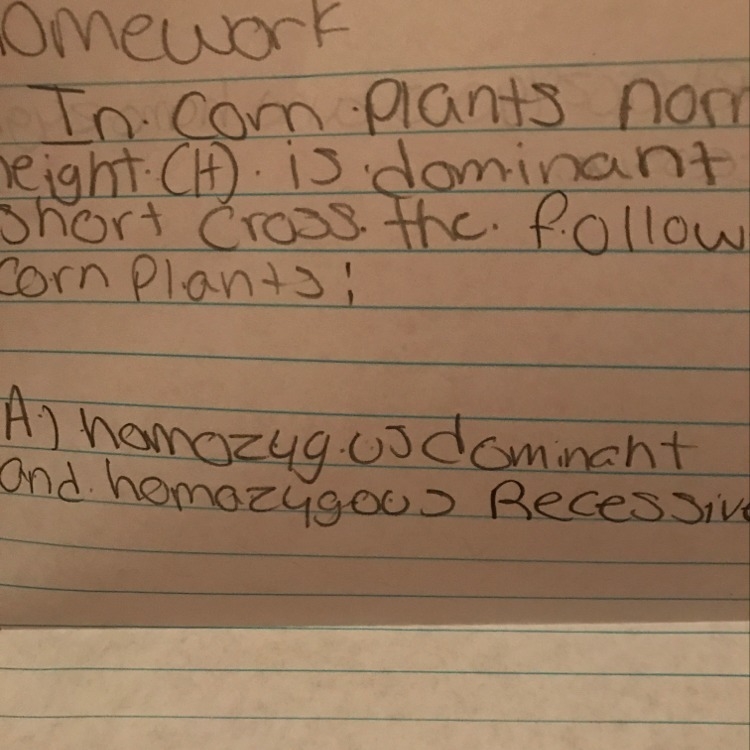 omework
In corn plants norm
height (H) is dominant
short cross the follow
corn plants:
A) homozygous dominant
and homozygous Recessive